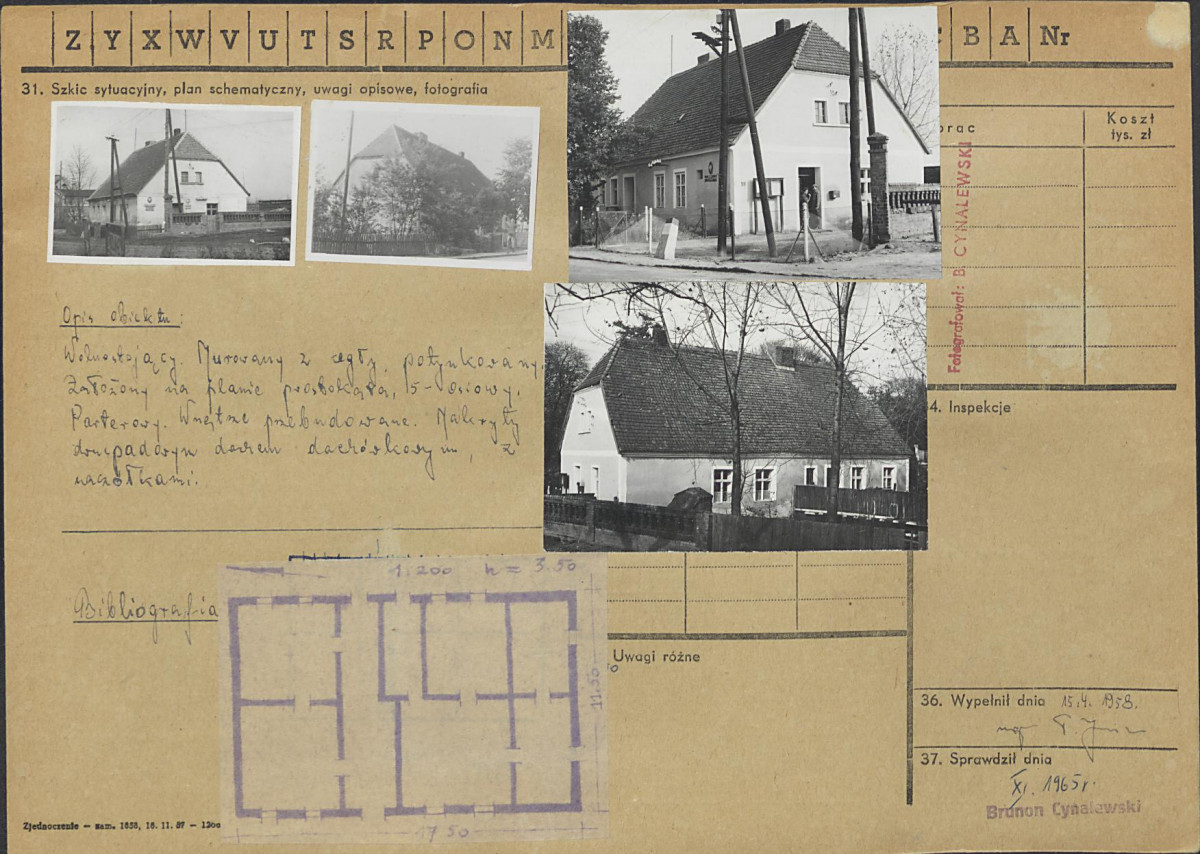 Z Y X W V U T S R P O N M
B A Nr
31. Szkic sytuacyjny, plan schematyczny, uwagi opisowe, fotografia
Koszt
tys. zł
Fotografował: B. CYNALEWSKI
Opis obiektu:
Wolnostojący. Murowany z cegły, potynkowany.
Założony na planie prostokąta, 5-osiowy.
Parterowy. Wnętrze przebudowane. Nakryty
dwuspadowym dachem dachówkowym, z
naczółkami.
4. Inspekcje
1:200 h = 3.50
Bibliografia
11.50
17 50
Uwagi różne
36. Wypełnił dnia 15.4. 1958.
mgr
37. Sprawdził dnia
XI. 1965 r.
Brunon Cynalewski
Zjednoczenie — zam. 1838, 16. 11. 57 — 1200